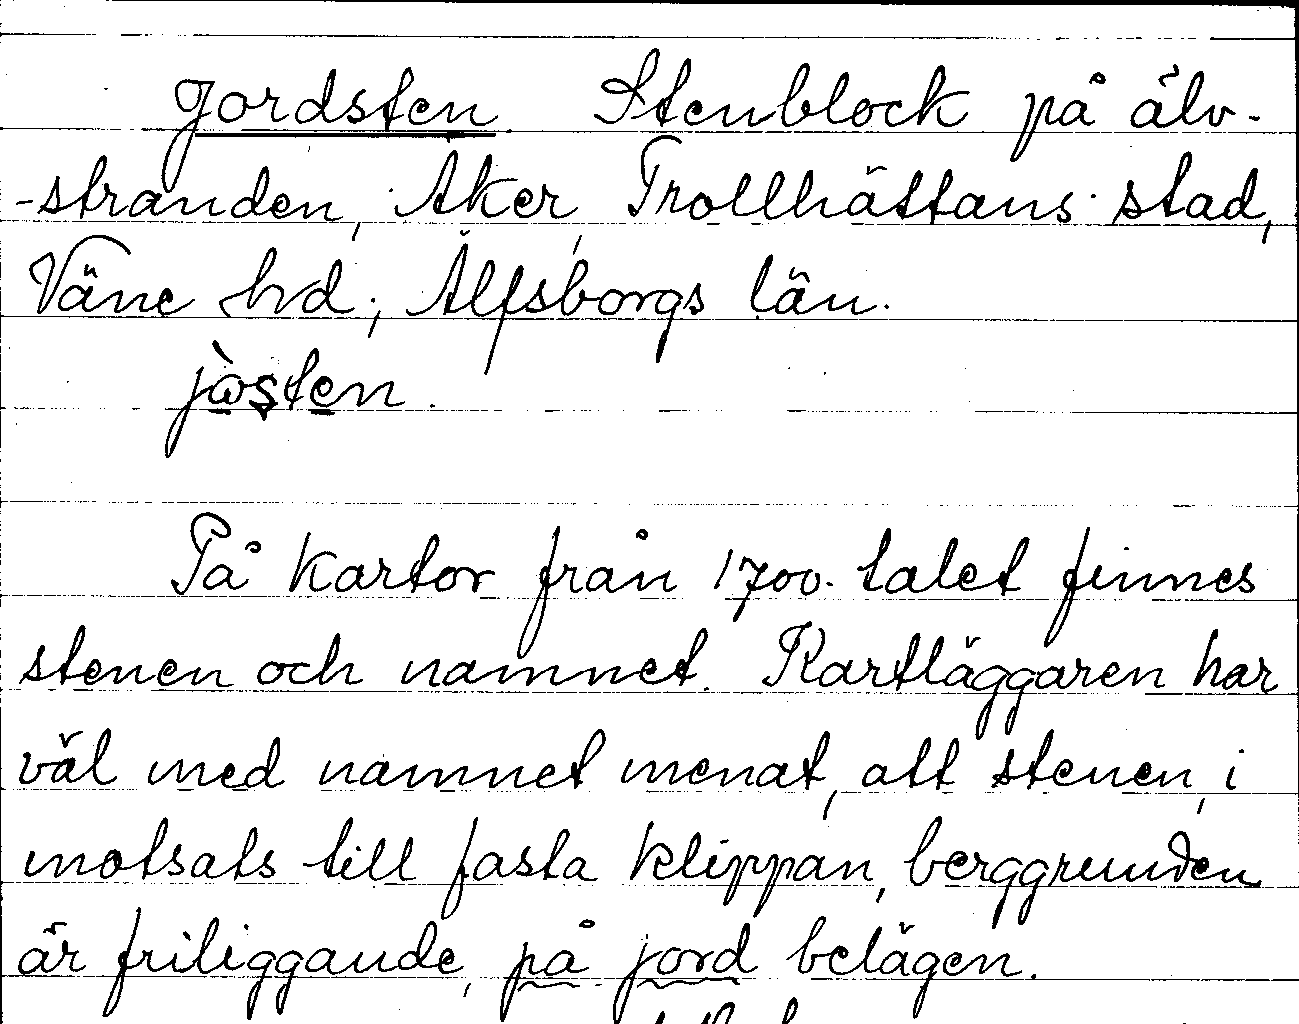 Jordsten. Stenblock på älv-
-stranden, Åker, Trollhättans stad,
Väne hd, Älfsborgs län.
jòsten.
På kartor från 1700-talet finnes
stenen och namnet. Kartläggaren har
väl med namnet menat, att stenen, i
motsats till fasta klippan, berggrunden
är friliggande, på jord belägen.